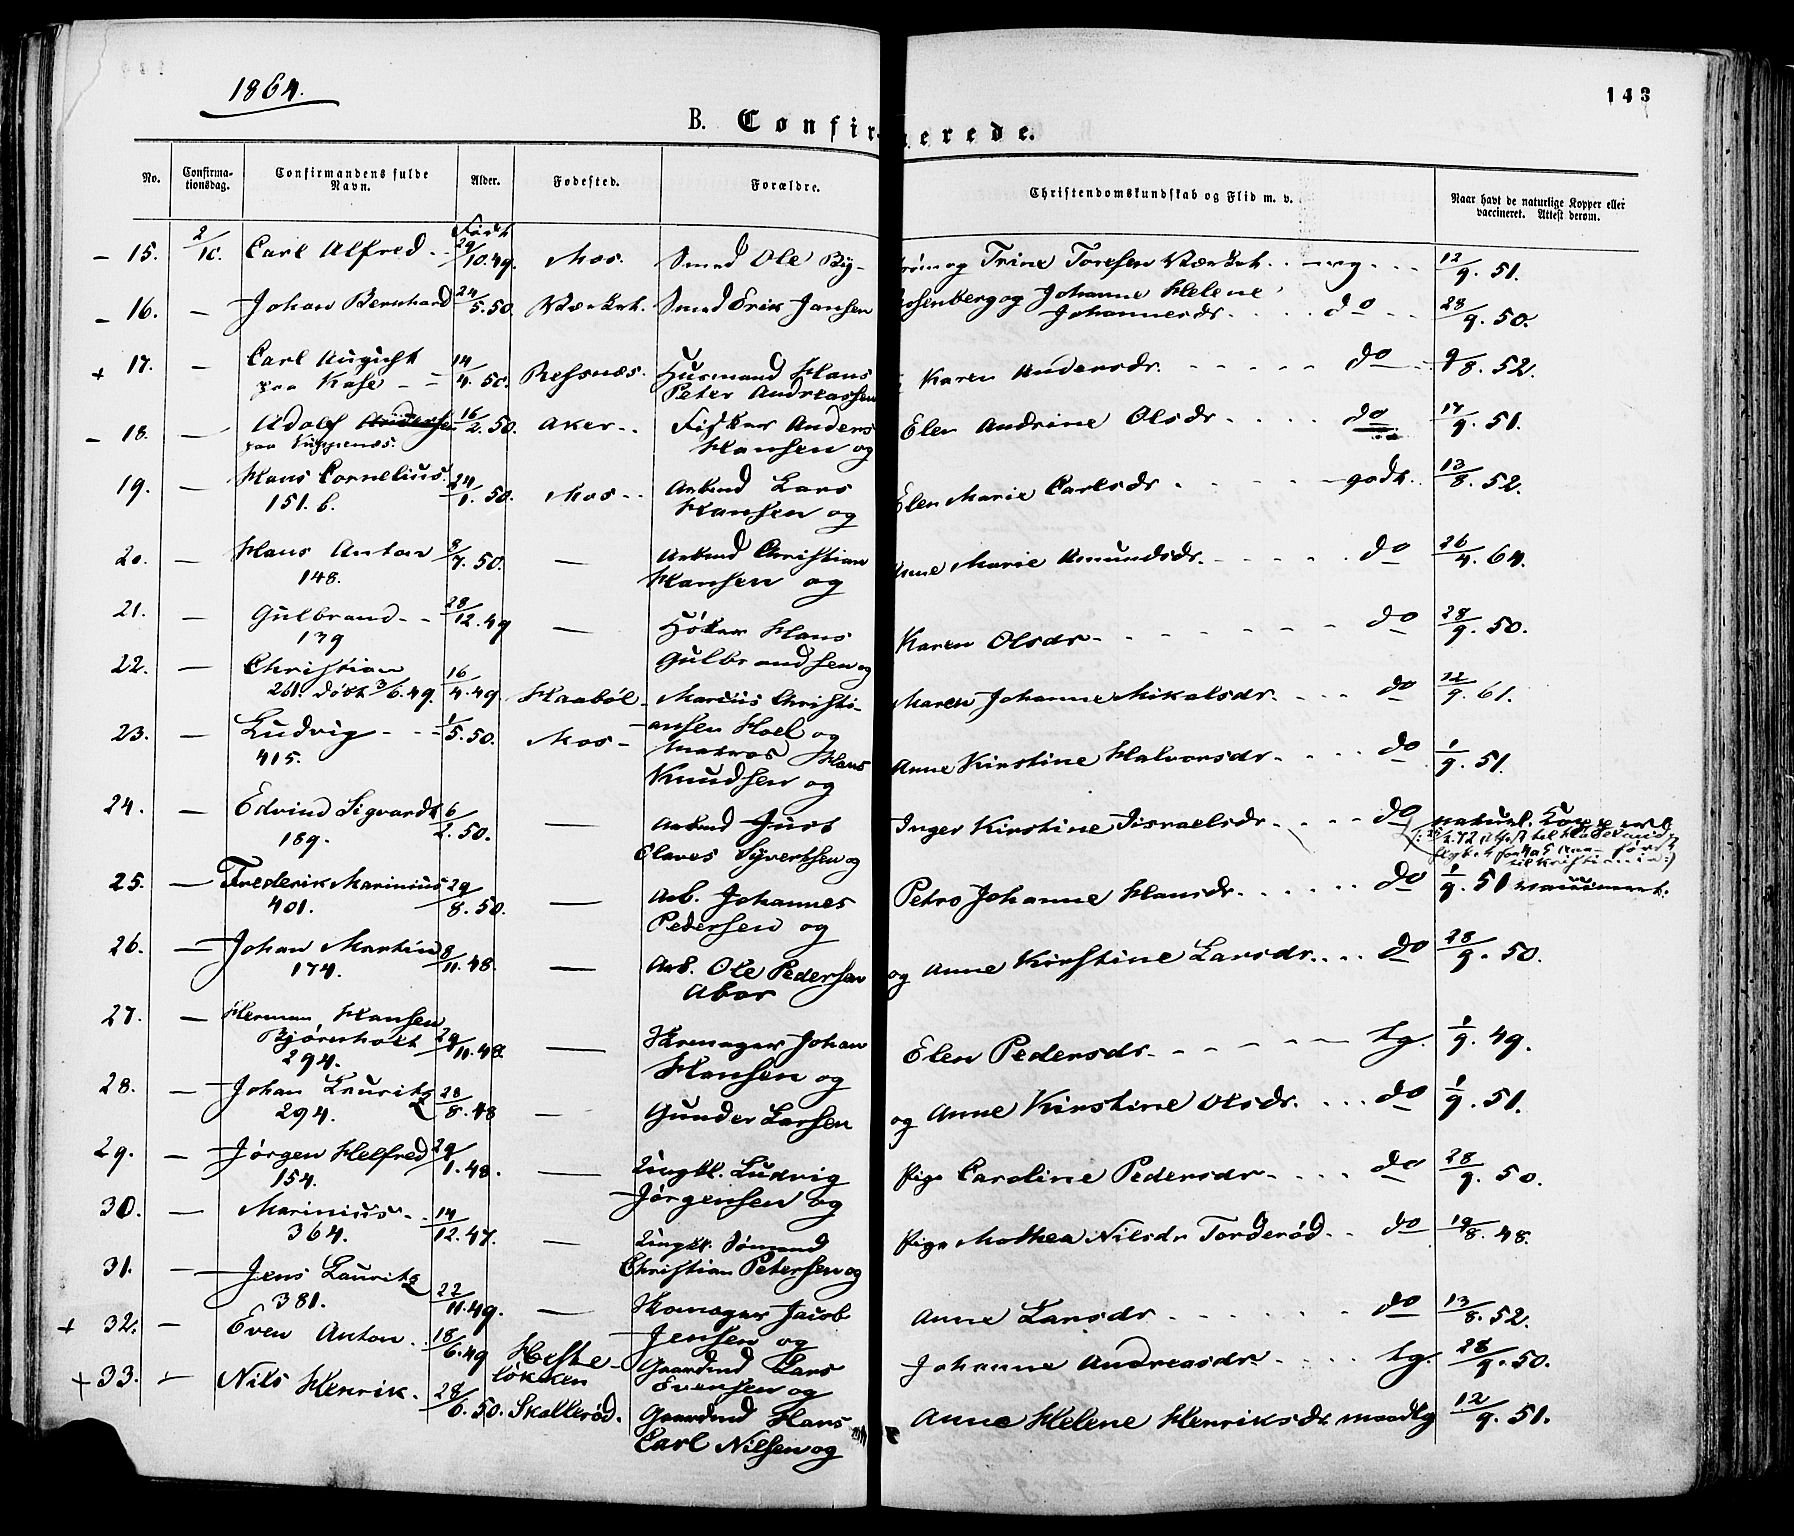 1864.
143
B. Confirmerede.
No. Confirma-tionsdag. Confirmandens fulde Navn. Alder. Fødested. Forældre. Christendomskundskab og Flid m. v. Naar havt de naturlige Kopper eller vaccineret. Attest derom.
Født
– 15. 2/10. Carl Alfred 29/10.49. Mos. Smed Ole By- og Trine Toresen Værket mg 12/9.51.
– 16. – Johan Bernhard 24/5.50. Værket. Smed Erik Jansen Rosenberg og Johanne Helene do 28/9.50.
Johannesdr.
+ 17. – Carl August 14/4.50. Refsnæs. Husmand Hans Karen Andersdr. do 9/8.52.
paa Kase Peter Andreassen
– 18. – Adolf Andersen 16/2.50. Aker Fisker Anders Elen Andrine Olsdr do 17/9.51.
paa Kippenæs. Hansen og
19. – Hans Cornelius. 24/1.50. Mos Arbmd Lars Elen Marie Carlsdr godt. 13/8.52.
151.b. Hansen og
20. – Hans Anton 8/7.50. — Arbmd Christian Anne Marie Amundsdr. do 26/4.64.
148. Hansen og
21. – Gulbrand 28/12.49 — Höker Hans Karen Olsdr do 28/9.50.
139 Gulbrandsen og
22. – Christian 16/4.49. Kaabøl Marius Christi- Maren Johanne Mikalsdr. do 12/9.61.
261. døbt 3/6.49. ansen Hoel og
23. – Ludvig 1/5.50. Mos Matros Hans Anne Kirstine Halvorsdr do 1/9.51.
415. Knudsen og
24. – Edvind Sigvardt 6/2.50. — Arbmd Just Inger Kirstine Israelsdr do naturl. Kopper
189. Olaves Syvertsen og
til Kristiania:)
25. – Frederik Marinius 29/8.50. — Arb. Johannes Petro Johanne Hansdr do 1/9.51 vaccineret.
401. Pedersen og
26. – Johan Martin 8/11.48. — Arb. Ole Pedersen og Anne Kirstine Larsdr. do 28/9.50.
174. Abor
27. – Herman Hansen 29/11.48. — Skomager Johan Elen Pedersdr. tg. 1/9.49.
Bjørnholt Hansen og
294.
28. – Johan Lauritz 28/8.48 — Gunder Larsen og Anne Kirstine Olsdr. do 1/9.51.
294.
29. – Jørgen Helfred 29/1.48. — Ungkl. Ludvig Pige Caroline Pedersdr do 28/9.50.
154. Jørgensen og
30. – Marinius 14/12.47. — Ungkl. Sømand Pige Mathea Nilsdr Torderød do 19/8.48.
364. Christian Petersen og
31. – Jens Lauritz 22/11.49. — Skomager Jacob Anne Larsdr do 13/8.52.
381. Jensen og
+ 32. – Even Anton 18/6.49 Hestelökken Gaardmd Lars Johanne Andreasdr. tg. 28/9.50.
Evensen og
+ 33. – Nils Henrik 28/6.50. Skallerød. Gaardmd Hans Anne Helene Henriksdr maadlg 12/9.51.
Carl Nilsen og